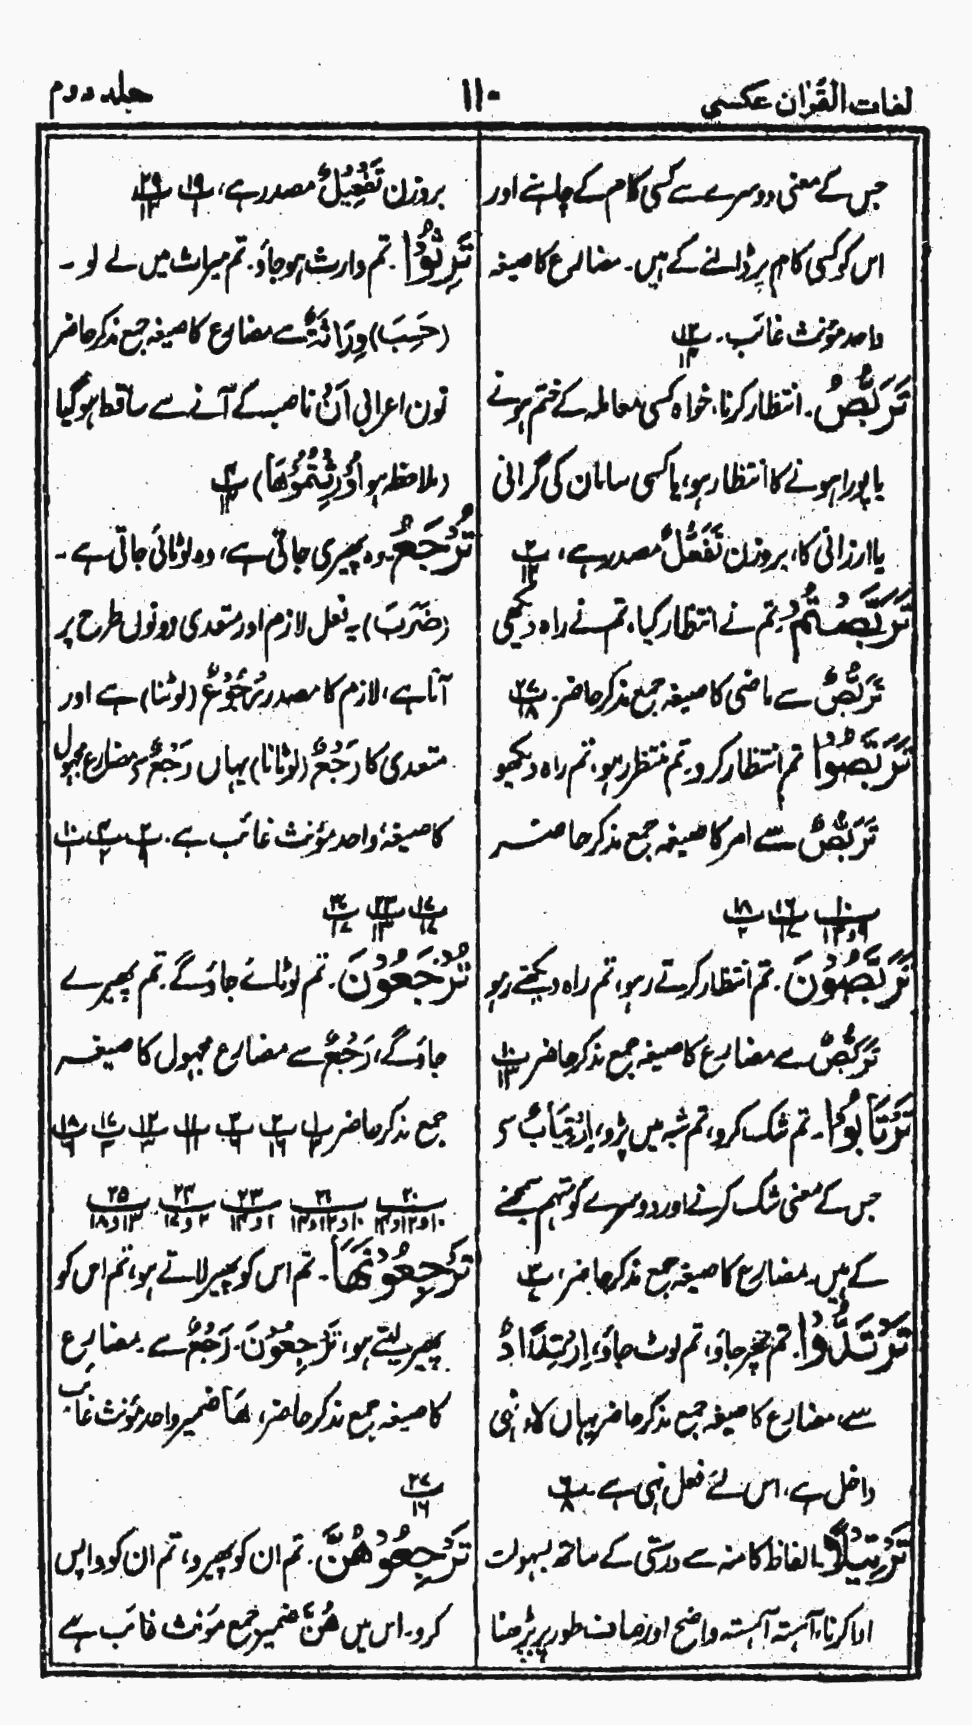 لغات القرآن عکسی
۱۱۰
جلد دوم
جس کے معنی دوسرے سے کسی کام کے چاہنے اور
اس کو کسی کام پر ڈالنے کے ہیں۔ مضارع کا صیغہ
واحد مؤنث غائب۔ پ۱۲/۱۳
تَرَبُّصُ۔ انتظار کرنا، خواہ کسی معاملہ کے ختم ہونے
یا پورا ہونے کا انتظار ہو، یا کسی سامان کی گرانی
یا ارزانی کا، بروزن تَفَعُّلٌ مصدر ہے، پ۲/۱۲
تَرَبَّصْتُمْ۔ تم نے انتظار کیا، تم نے راہ دیکھی
تَرَبُّصٌ سے ماضی کا صیغہ جمع مذکر حاضر۔ پ۲۷/۱۸
تَرَبَّصُوْا تم انتظار کرو۔ تم منتظر رہو، تم راہ دیکھیو
تَرَبُّصٌ سے امر کا صیغہ جمع مذکر حاضر
پ۱۰/۹و۱۳ پ۱۶/۱۷ پ۱۸/۲
تَرَبَّصُوْنَ۔ تم انتظار کرتے رہو، تم راہ دیکھتے رہو
تَرَبُّصٌ سے مضارع کا صیغہ جمع مذکر حاضر پ۱۰/۱۳
تَرْتَابُوْا۔ تم شک کرو، تم شبہ میں پڑو، اِرْتِیَابٌ سے
جس کے معنی شک کرنے اور دوسرے کو متہم سمجھنے
کے ہیں۔ مضارع کا صیغہ جمع مذکر حاضر، پ۳/۷
تَرْتَدُّوْا۔ تم پھر جاؤ، تم لوٹ جاؤ، اِرْتِدَادٌ
سے، مضارع کا صیغہ جمع مذکر حاضر یہاں لاء نہی
داخل ہے، اس لئے فعل نہی ہے۔ پ۶/۸
تَرْتِیْلًا۔ الفاظ کا منہ سے درستی کے ساتھ بسہولت
ادا کرنا، آہستہ آہستہ واضح اور صاف طور پر پڑھنا
بروزن تَفْعِیْلٌ مصدر ہے، پ۱۹/۱ پ۲۹/۱۳
تَرِثُوا۔ تم وارث ہو جاؤ۔ تم میراث میں لے لو۔
(حَسِبَ) وِرَاثَۃٌ سے مضارع کا صیغہ جمع مذکر حاضر
نون اعرابی اَنْ ناصبہ کے آنے سے ساقط ہو گیا
(ملاحظہ ہو اُوْرِثْتُمُوْھَا) پ۴/۱۴
تُرْجَعُ۔ وہ پھیری جاتی ہے، وہ لوٹائی جاتی ہے۔
(ضَرَبَ) یہ فعل لازم اور متعدی دونوں طرح پر
آتا ہے، لازم کا مصدر رُجُوْعٌ (لوٹنا) ہے اور
متعدی کا رَجْعٌ (لوٹانا) یہاں رَجْعٌ سے مضارع مجہول
کا صیغہ واحد مؤنث غائب ہے۔ پ۲/۹ پ۴/۲ پ۱۰/۱
پ۱۷/۱۷ پ۲۲/۱۳ پ۲۷/۱۷
تُرْجَعُوْنَ۔ تم لوٹائے جاؤ گے۔ تم پھیرے
جاؤ گے، رَجْعٌ سے مضارع مجہول کا صیغہ
جمع مذکر حاضر
پ۲۰/۱۰و۱۲و۱۳
تَرْجِعُوْنَھَا۔ تم اس کو پھیر لاتے ہو، تم اس کو
پھیر لیتے ہو، تَرْجِعُوْنَ۔ رَجْعٌ سے مضارع
کا صیغہ جمع مذکر حاضر، ھَا ضمیر واحد مؤنث غائب
پ۲۷/۱۶
تَرْجِعُوْھُنَّ۔ تم ان کو پھیرو، تم ان کو واپس
کرو۔ اس میں ھُنَّ ضمیر جمع مؤنث غائب ہے